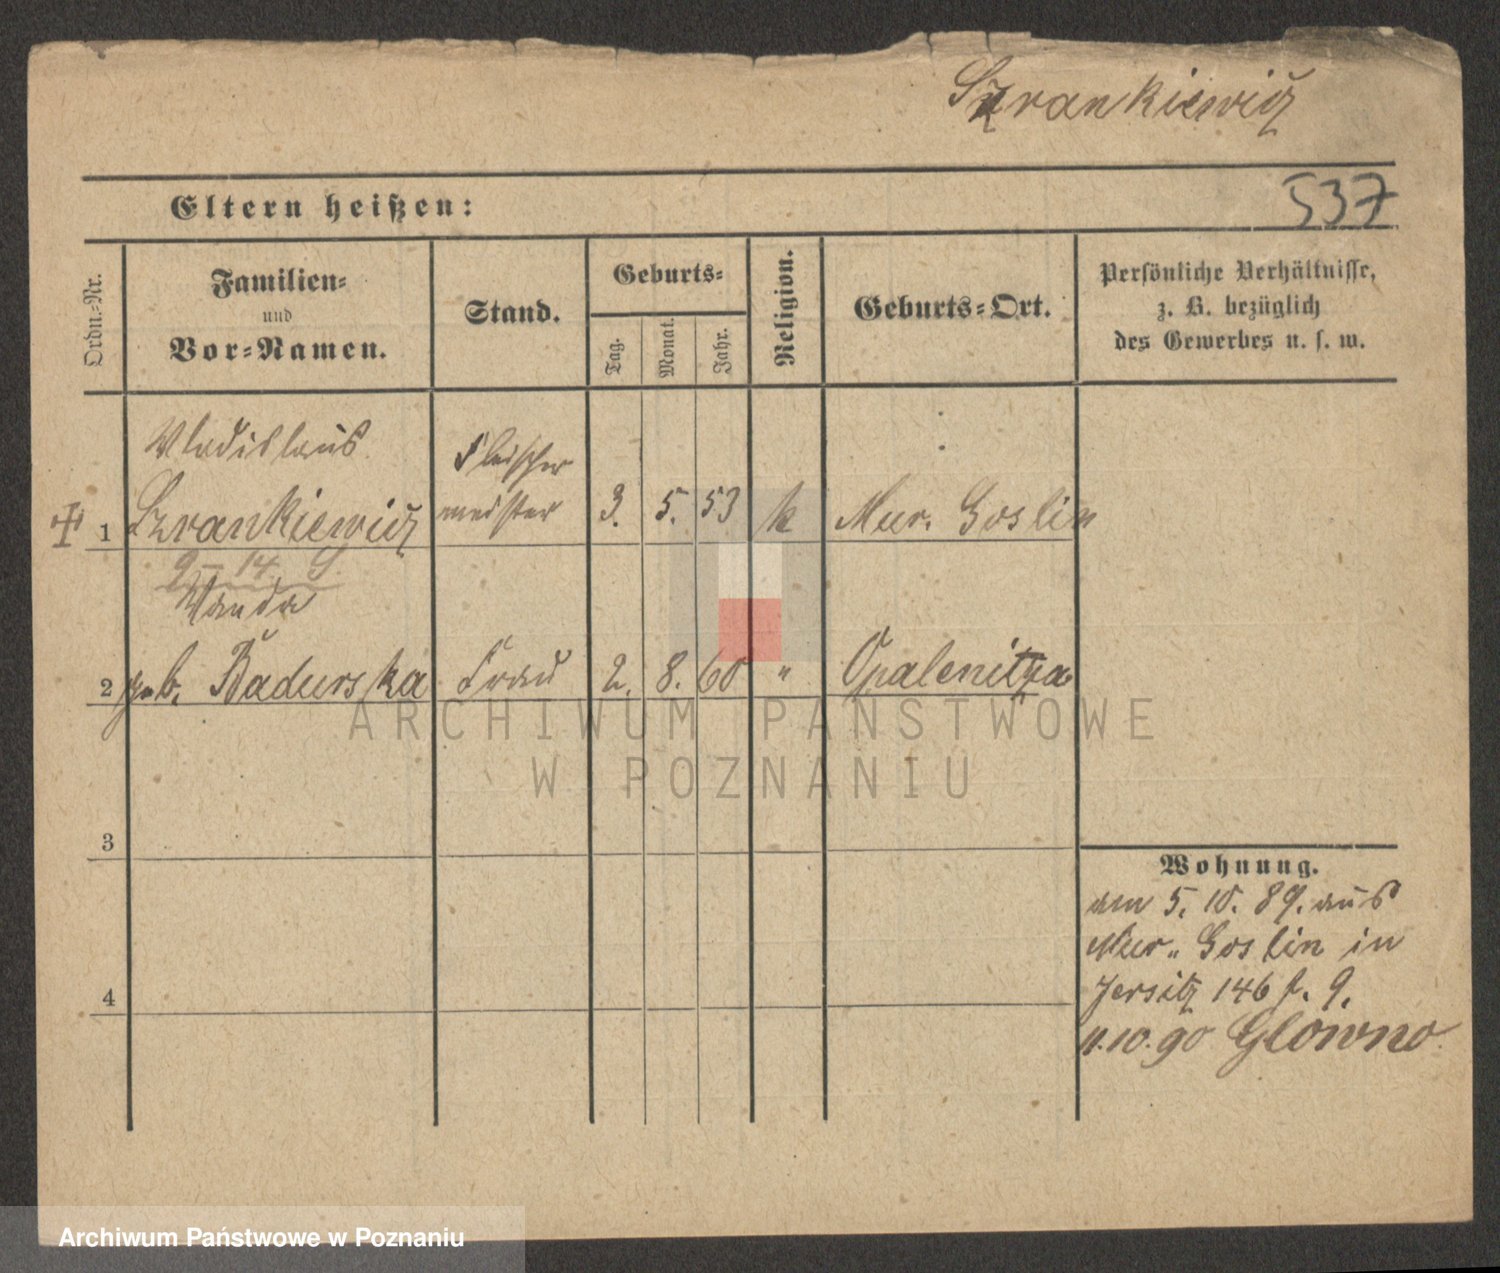 Szrankiewicz
537
Eltern heißen:
Ordn.-Nr.
Familien-
und
Vor-Namen.
Stand.
Geburts-
Tag.
Monat.
Jahr.
Religion.
Geburts-Ort.
Persönliche Verhältnisse,
z. B. bezüglich
des Gewerbes u. s. w.
Wladislaus
Fleischer
1 Szrankiewicz meister 3. 5. 53 k Mur. Goslin
9-14
Wanda
2 geb. Badurska Frau 2. 8. 60 " Opalenitza
3
4
Wohnung.
am 5. 10. 89. aus
Mur. Goslin in
Jersitz 146 f. 9.
11.10.90 Glowno
ARCHIWUM PAŃSTWOWE
W POZNANIU
Archiwum Państwowe w Poznaniu